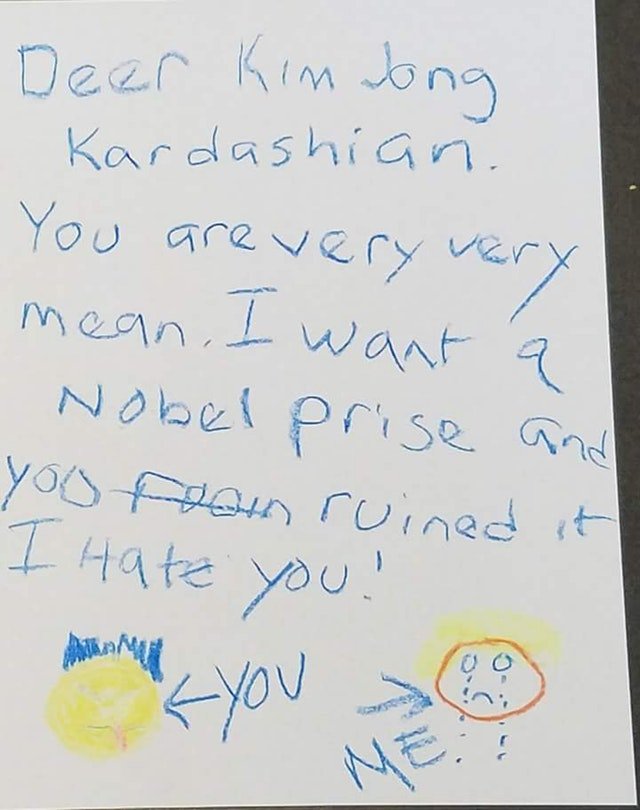 Deer Kim Jong
Kardashian.
You are very very
mean. I want a
Nobel prise and
you ruined it
I Hate you!
← YOU
ME.